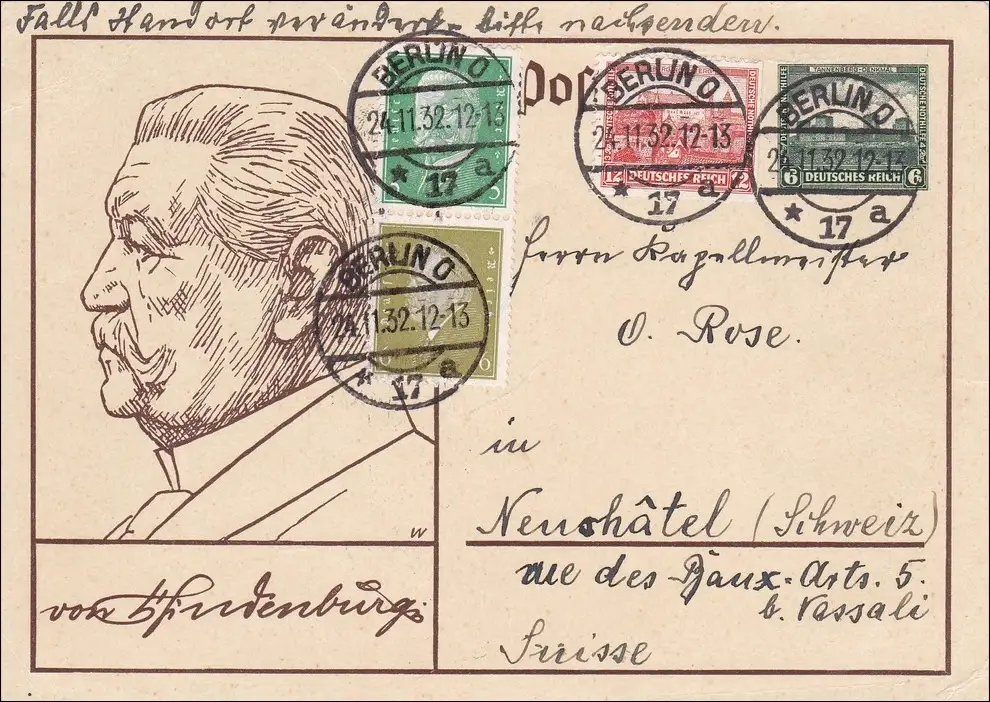 Falls Standort verändert, bitte nachsenden.
BERLIN O
24.11.32.12-13
* 17 a
BERLIN O
24.11.32.12-13
* 17 a
DEUTSCHES REICH
12 12
BERLIN O
24.11.32.12-13
* 17 a
TANNENBERG-DENKMAL
DEUTSCHE NOTHILFE
6 DEUTSCHES REICH 6
BERLIN O
24.11.32.12-13
* 17 a
6
Herrn Kapellmeister
O. Rose.
in
Neuchâtel (Schweiz)
rue des Beaux-Arts. 5.
b. Vassali
Suisse
W
von Hindenburg